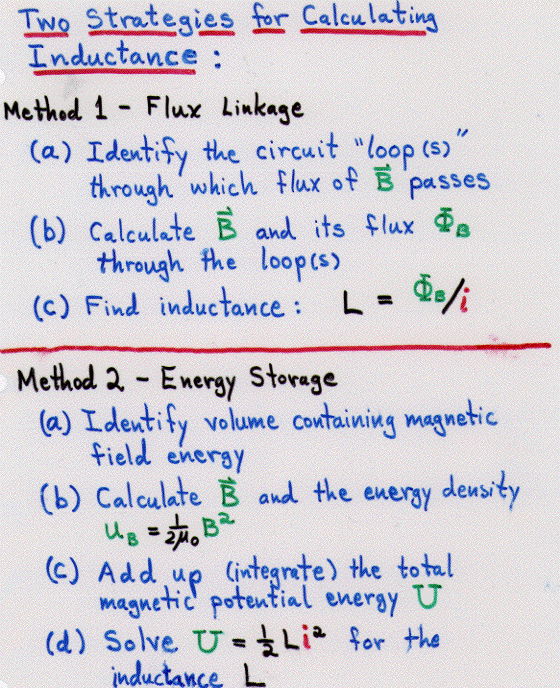 Two Strategies for Calculating
Inductance :
Method 1 - Flux Linkage
(a) Identify the circuit "loop(s)"
through which flux of B⃗ passes
(b) Calculate B⃗ and its flux Φ_B
through the loop(s)
(c) Find inductance : L = Φ_B/i
Method 2 - Energy Storage
(a) Identify volume containing magnetic
field energy
(b) Calculate B⃗ and the energy density
u_B = 1/2μ₀ B²
(c) Add up (integrate) the total
magnetic potential energy U
(d) Solve U = ½ L i² for the
inductance L